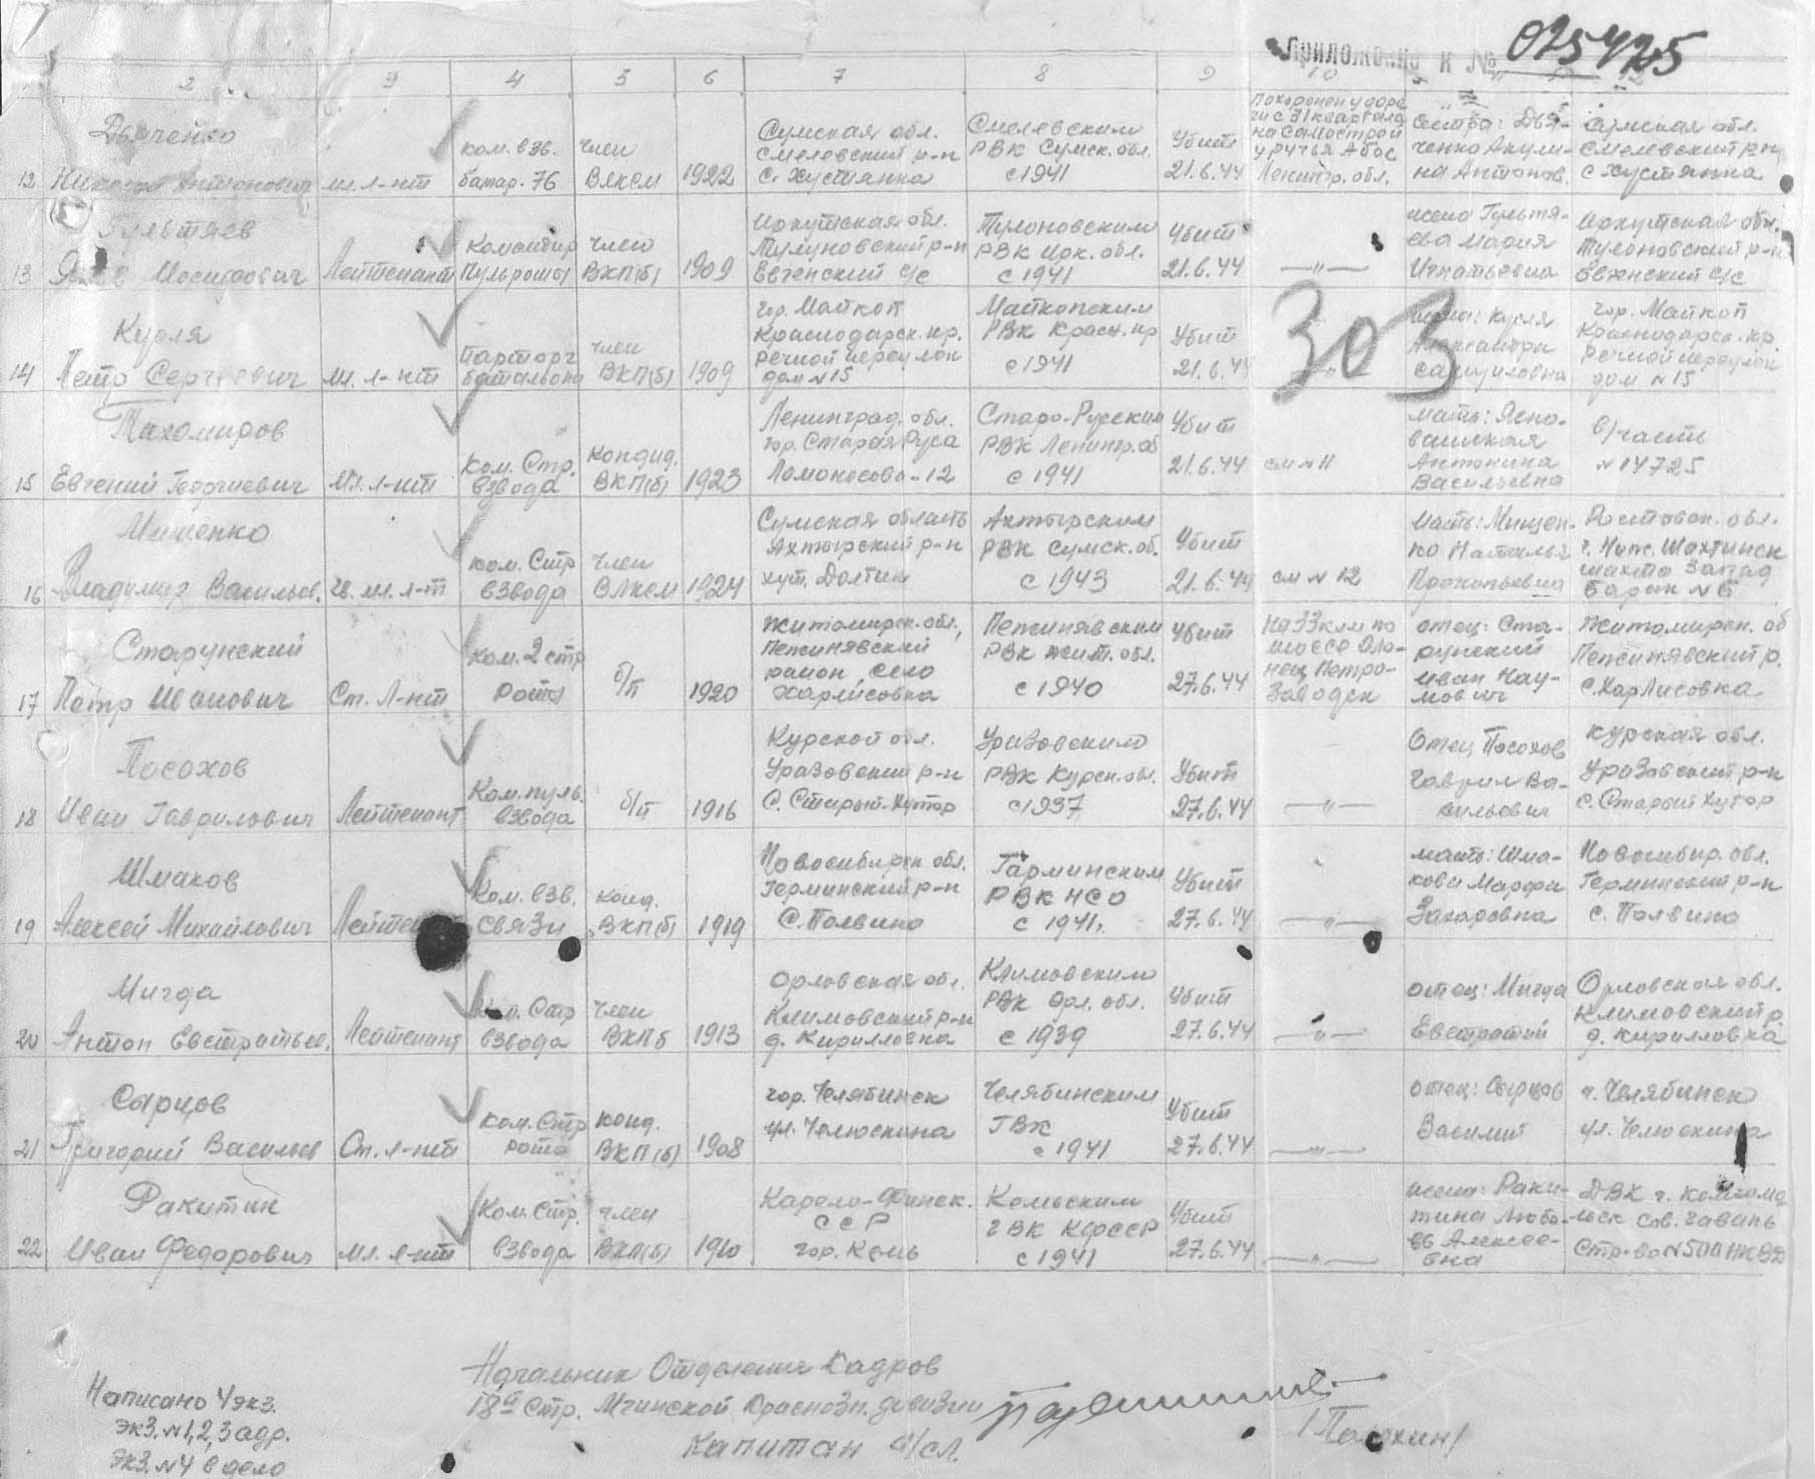 Приложение к № 025425
2 3 4 5 6 7 8 9 10
12 Дьяченко Николай Антонович мл. л-нт ком. взв. батар. 76 член ВЛКСМ 1922 Сумская обл. Смелевский р-н с. Хустянка Смелевским РВК Сумск. обл. с 1941 Убит 21.6.44 Похоронен у дороги с 31 квартала на Самострой у ручья Абос Ленингр. обл. Сестра: Дьяченко Акулина Антонов. Сумская обл. Смелевский р-н с Хустянка
13 Гультяев Осипович Лейтенант Командир Пульроты член ВКП(б) 1909 Иркутская обл. Тулуновский р-н Евженский с/с Тулоновским РВК Ирк. обл. с 1941 Убит 21.6.44 —"— жена Гультяева Мария Игнатьевна Иркутская обл. Тулоновский р-н Евженский с/с
14 Курля Петр Сергеевич мл. л-нт Парторг батальона член ВКП(б) 1909 гор. Майкоп Краснодарск. кр. Речной переулок дом №15 Майкопским РВК Красн. кр с 1941 Убит 21.6.44 303 жена: Курля Александра Самуиловна гор. Майкоп Краснодарск. кр. Речной переулок дом №15
15 Тихомиров Евгений Георгиевич Мл. л-нт Ком. Стр. взвода Кондид. ВКП(б) 1923 Ленинград. обл. гор. Старая Руса Ломоносова-12 Старо-Русским РВК Ленингр. об с 1941 Убит 21.6.44 см № 11 мать: Антонина Васильевна в/часть №14725
16 Мищенко Владимир Васильев. гв. мл. л-т ком. Стр взвода член ВЛКСМ 1924 Сумская область Ахтырский р-н хут. Долтин Ахтырским РВК Сумск. об. с 1943 Убит 21.6.44 см № 12 мать: Мищенко Наталья Прокопьевна Ростовск. обл. г. Нов. Шахтинск шахта Запад барак №6
17 Старунский Петр Иванович Ст. Л-нт Ком. 2 стр роты б/п 1920 Житомирск. обл., район, село Харлисовка РВК Жит. обл. с 1940 Убит 27.6.44 На 33 клм по шоссе Олонец Петрозаводск отец: Старунский Иван Наумович Житомирск. об с. Харлисовка
18 Посохов Иван Гаврилович Лейтенант Ком. пуль. взвода б/п 1916 Курской обл. Уразовский р-н С. Старый-Хутор Уразовским РВК Курск. обл. с 1937 Убит 27.6.44 —"— Отец Посохов Гаврил Васильевич Курская обл. Уразовский р-н с. Старый Хутор
19 Шмаков Алексей Михайлович Лейтенант Ком. взв. связи конд. ВКП(б) 1919 Новосибирск обл. Герминский р-н С. Полвино Гарминским РВК НСО с 1941г. Убит 27.6.44 —"— мать: Шмакова Марфа Захаровна Новосибир. обл. Герминский р-н с. Полвино
20 Мигда Антон Евстратьев. Лейтенант Ком. Стр взвода Член ВКПб 1913 Орловская обл. Климовский р-н д. Кирилловка Климовским РВК Орл. обл. с 1939 Убит 27.6.44 —"— отец: Мигда Евстратий Орловская обл. Климовский р д. Кирилловка
21 Сырцов Григорий Васильев Ст. л-нт Ком. Стр рота конд. ВКП(б) 1908 гор. Челябинск ул. Челюскина Челябинским ГВК с 1941 Убит 27.6.44 —"— отец: Сырцов Василий г. Челябинск ул. Челюскина
22 Ракитин Иван Федорович мл. л-нт Ком. Стр. взвода член ВКП(б) 1910 Карело-Финск. ССР гор. Кемь Кемьским ГВК КФССР с 1941 Убит 27.6.44 —"— жена: Ракитина Любовь Алексеевна ДВК г. Комсомольск Сов. Гавань Стр-во №500 НКВД
Начальник Отделения Кадров
18й Стр. Мгинской Краснозн. дивизии
Капитан а/сл.
Написано 4 экз.
Экз. №1,2,3 адр.
Экз. №4 в дело